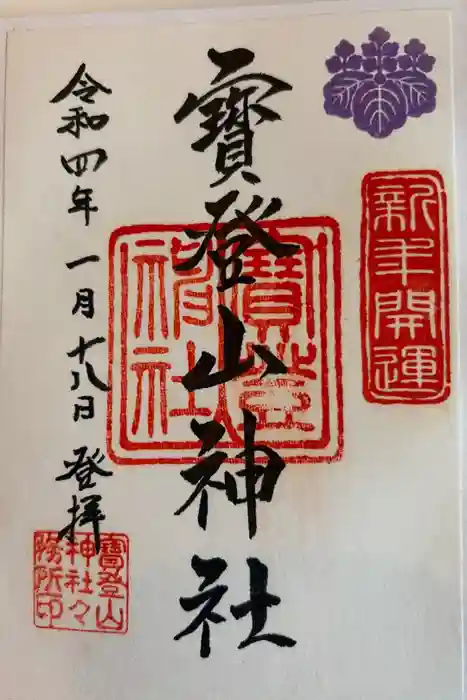 新年開運
寳登山神社
寳登山神社
令和四年一月十八日登拝
寳登山
神社々
務所印